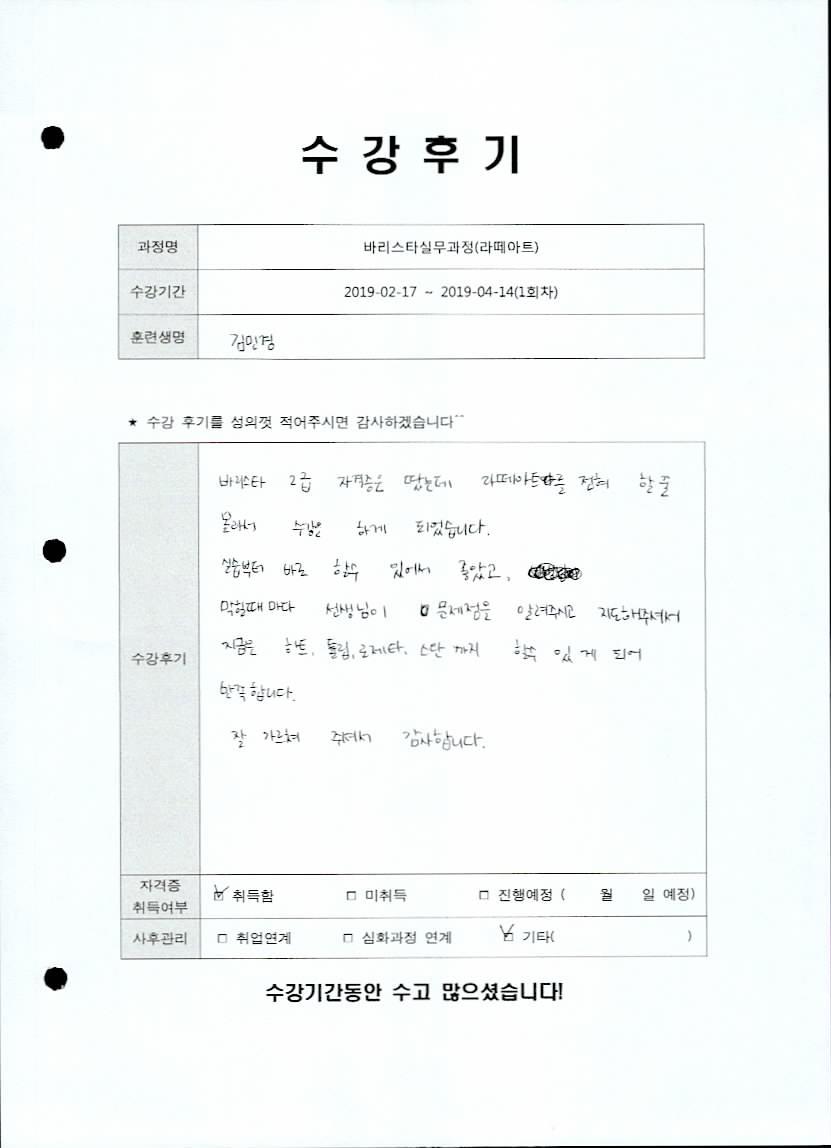 수 강 후 기
과정명 바리스타실무과정(라떼아트)
수강기간 2019-02-17 ~ 2019-04-14(1회차)
훈련생명 김민경
★ 수강 후기를 성의껏 적어주시면 감사하겠습니다^^
수강후기
바리스타 2급 자격증은 땄는데 라떼아트를 전혀 할 줄
몰라서 수강을 하게 되었습니다.
실습부터 바로 할수 있어서 좋았고,
막힐때 마다 선생님이 문제점을 알려주시고 지도해주셔서
지금은 하트, 튤립, 로제타, 스완 까지 할수 있 게 되어
만족합니다.
잘 가르쳐 주셔서 감사합니다.
자격증
취득여부 ☑ 취득함 □ 미취득 □ 진행예정 ( 월 일 예정)
사후관리 □ 취업연계 □ 심화과정 연계 ☑ 기타( )
수강기간동안 수고 많으셨습니다!